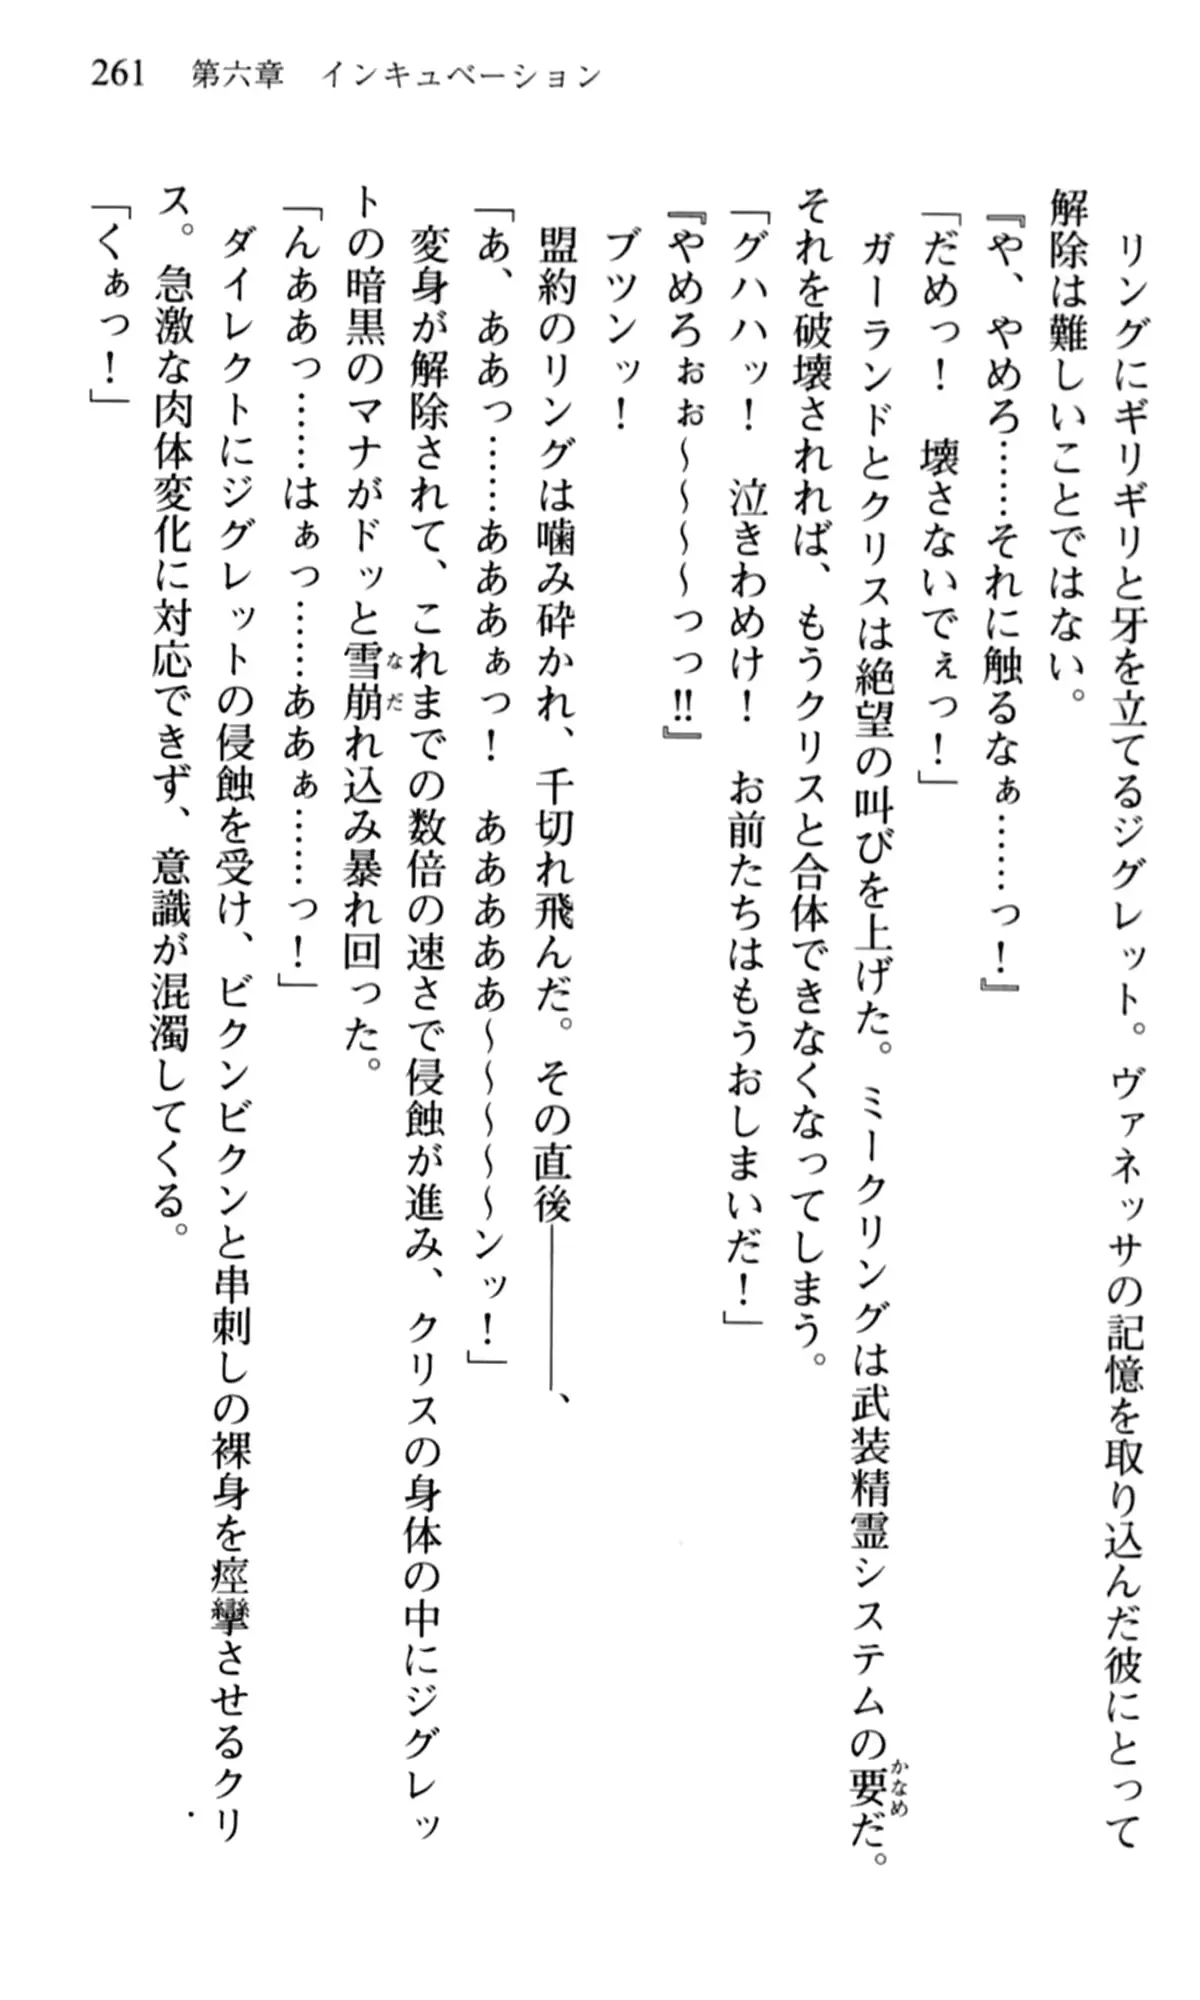 261 第六章 インキュベーション
　リングにギリギリと牙を立てるジグレット。ヴァネッサの記憶を取り込んだ彼にとって
解除は難しいことではない。
『や、やめろ……それに触るなぁ……っ！』
「だめっ！　壊さないでぇっ！」
　ガーランドとクリスは絶望の叫びを上げた。ミークリングは武装精霊システムの要だ。
かなめ
それを破壊されれば、もうクリスと合体できなくなってしまう。
「グハハッ！　泣きわめけ！　お前たちはもうおしまいだ！」
『やめろぉぉ～～～～っっ!!』
　ブツンッ！
　盟約のリングは噛み砕かれ、千切れ飛んだ。その直後――――、
「あ、ああっ……あああぁっ！　あああああ～～～～～ンッ！」
　変身が解除されて、これまでの数倍の速さで侵蝕が進み、クリスの身体の中にジグレッ
トの暗黒のマナがドッと雪崩れ込み暴れ回った。
なだ
「んああっ……はぁっ……ああぁ……っ！」
　ダイレクトにジグレットの侵蝕を受け、ビクンビクンと串刺しの裸身を痙攣させるクリ
ス。急激な肉体変化に対応できず、意識が混濁してくる。
「くぁっ！」